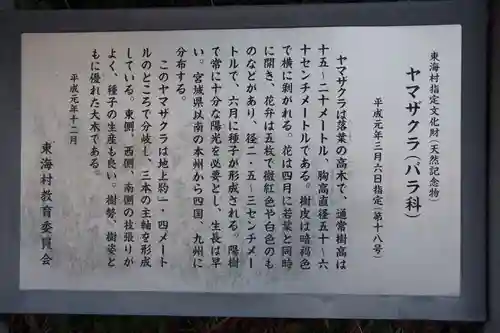 東海村指定文化財(天然記念物)
ヤマザクラ(バラ科)
平成元年三月六日指定(第十八号)
ヤマザクラは落葉の高木で、通常樹高は
十五~二十メートル、胸高直径五十~六
十センチメートルである。樹皮は暗褐色
で横に剥がれる。花は四月に若葉と同時
に開き、花弁は五枚で微紅色や白色のも
のなどがあり、径二・五~三センチメー
トルで、六月に種子が形成される。陽樹
で常に十分な陽光を必要とし、生長は早
い。宮城県以南の本州から四国、九州に
分布する。
このヤマザクラは地上約一・四メート
ルのところで分岐し、三本の主軸を形成
している。東側、西側、南側の枝張りが
よく、種子の生産も良い。樹勢、樹姿と
もに優れた大木である。
平成元年十二月
東海村教育委員会